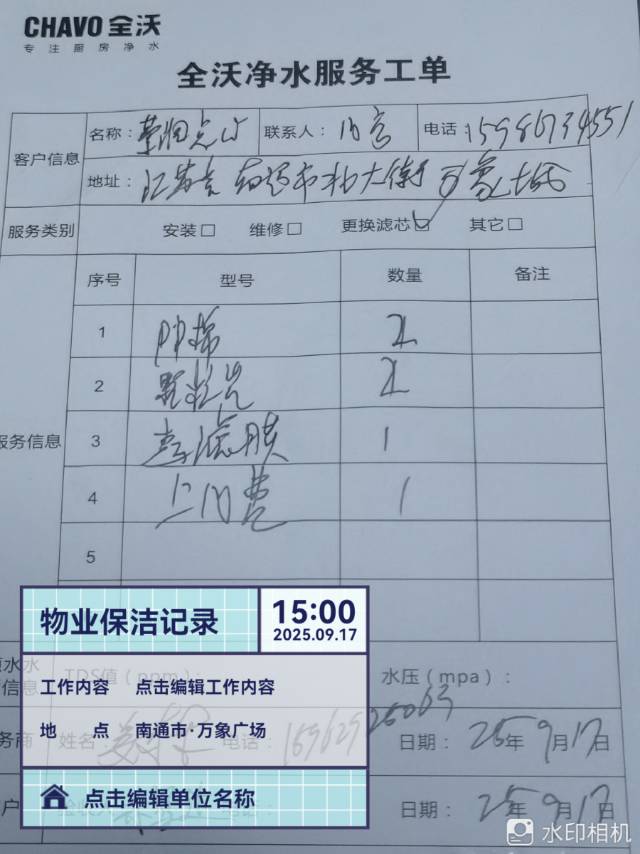 CHAVO 全沃
专注厨房净水
全沃净水服务工单
客户信息
名称: 联系人: 电话: 15986734551
地址: 江苏省南通市北大街万象城
服务类别 安装 维修 更换滤芯 其它
序号 型号 数量 备注
服务信息
1 PP棉 2
2 颗粒炭 2
3 渗滤膜 1
4 上门费 1
5
物业保洁记录 15:00
2025.09.17
工作内容 点击编辑工作内容
地 点 南通市·万象广场
点击编辑单位名称
TDS值(ppm): 水压(mpa):
姓名: 电话: 日期: 25年9月17日
日期: 25年9月17日
水印相机